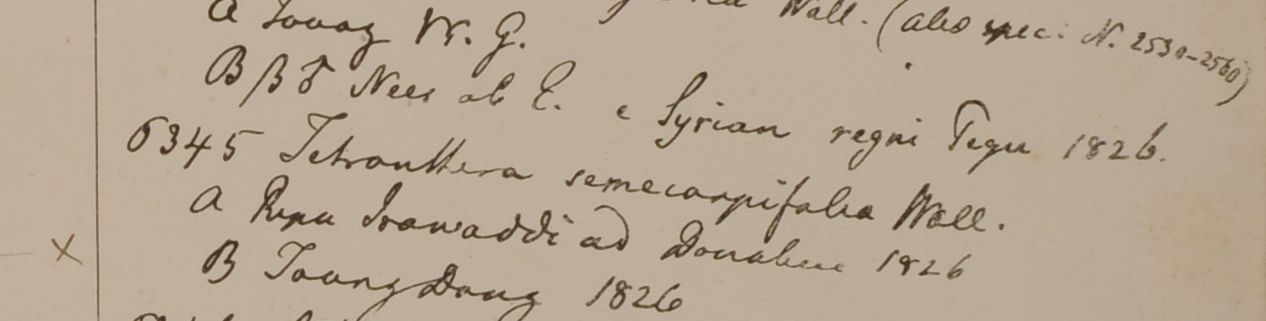 Wall. (also spec: N. 2530-2560)
A Tavoy W. G.
B β δ Nees ab E. e Syrian regni Pegu 1826.
6345 Tetranthera semecarpifolia Wall.
A Ripa Irawaddi ad Donabue 1826
X
B Toong Dong 1826